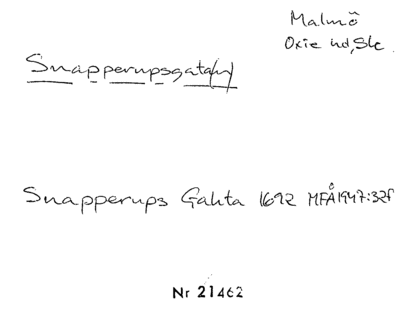 Malmö
Oxie hd, Sk.
Snapperupsgata(n)
Snapperups Gahta 1692 MFÅ 1947:32f
Nr 21462